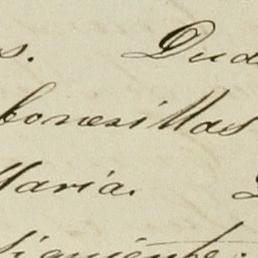 s. Dud
bonesillas
Maria.
siguiente: